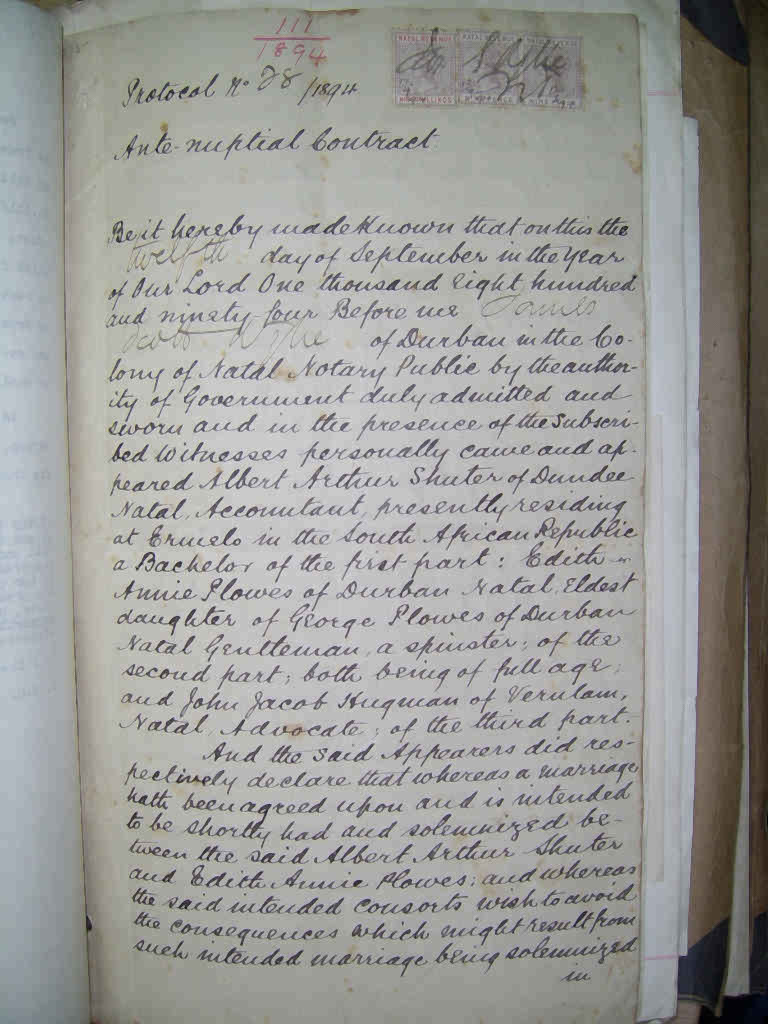 111
1894
NATAL REVENUE
NATAL REVENUE
Protocol No 28 /1894
Ante-nuptial Contract
Be it hereby made Known that on this the
twelfth day of September in the Year
of Our Lord One thousand Eight hundred
and ninety-four Before me James
Scott Wylie of Durban in the Co-
lony of Natal Notary Public by the author-
ity of Government duly admitted and
sworn and in the presence of the Subscri-
bed Witnesses personally came and ap-
peared Albert Arthur Shuter of Dundee
Natal, Accountant, presently residing
at Ermelo in the South African Republic
a Bachelor of the first part: Edith
Annie Plowes of Durban Natal, Eldest
daughter of George Plowes of Durban
Natal Gentleman, a spinster; of the
second part; both being of full age;
and John Jacob Hugman of Verulam,
Natal, Advocate; of the third part.
And the said Appearers did res-
pectively declare that whereas a marriage
hath been agreed upon and is intended
to be shortly had and solemnized be-
tween the said Albert Arthur Shuter
and Edith Annie Plowes; and whereas
the said intended consorts wish to avoid
the consequences which might result from
such intended marriage being solemnized
in